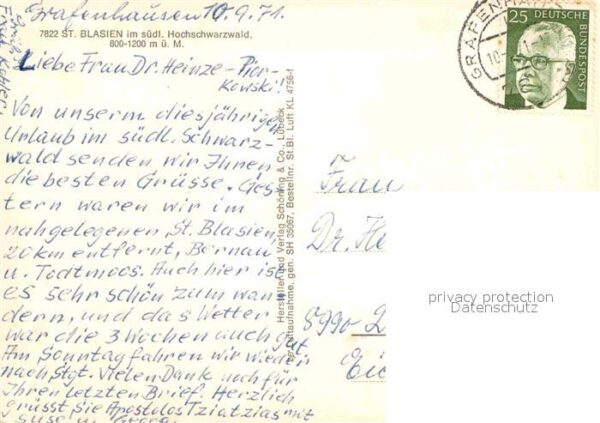 Grafenhausen 10.9.71.
7822 ST. BLASIEN im südl. Hochschwarzwald.
800-1200 m ü. M.
Liebe Frau Dr. Heinze-Pior-
kowski!
Von unserm diesjährigen
Urlaub im südl. Schwarz-
wald senden wir Ihnen
die besten Grüsse. Ges-
tern waren wir im
nahgelegenen St. Blasien
20 km entfernt, Bernau
u. Todtmoos. Auch hier ist
es sehr schön zum wan
dern, und das Wetter
war die 3 Wochen auch gut
Am Sonntag fahren wir wieder
nach Stgt. Vielen Dank noch für
Ihren letzten Brief. Herzlich
grüsst Sie Apostolos Tziatzias mit
Suse u. Georg
Hersteller und Verlag Schöning & Co., Lübeck
Luftaufnahme, gen. SH 35067, Bestellnr. St.Bl. Luft KL 4756-1
25 DEUTSCHE
BUNDESPOST
GRAFENHA
10.
Frau
Dr. He
8990
privacy protection
Datenschutz